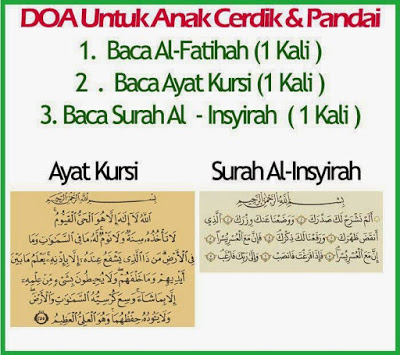 DOA Untuk Anak Cerdik & Pandai
1. Baca Al-Fatihah (1 Kali )
2 . Baca Ayat Kursi (1 Kali )
3. Baca Surah Al - Insyirah ( 1 Kali )
Ayat Kursi
بِسْمِ اللَّهِ الرَّحْمَٰنِ الرَّحِيمِ
اللَّهُ لَا إِلَٰهَ إِلَّا هُوَ الْحَيُّ الْقَيُّومُ
لَا تَأْخُذُهُ سِنَةٌ وَلَا نَوْمٌ لَهُ مَا فِي السَّمَاوَاتِ وَمَا
فِي الْأَرْضِ مَنْ ذَا الَّذِي يَشْفَعُ عِنْدَهُ إِلَّا بِإِذْنِهِ يَعْلَمُ مَا بَيْنَ
أَيْدِيهِمْ وَمَا خَلْفَهُمْ وَلَا يُحِيطُونَ بِشَيْءٍ مِنْ عِلْمِهِ
إِلَّا بِمَا شَاءَ وَسِعَ كُرْسِيُّهُ السَّمَاوَاتِ وَالْأَرْضَ
وَلَا يَئُودُهُ حِفْظُهُمَا وَهُوَ الْعَلِيُّ الْعَظِيمُ
Surah Al-Insyirah
بِسْمِ اللَّهِ الرَّحْمَٰنِ الرَّحِيمِ
أَلَمْ نَشْرَحْ لَكَ صَدْرَكَ وَوَضَعْنَا عَنْكَ وِزْرَكَ الَّذِي
أَنْقَضَ ظَهْرَكَ وَرَفَعْنَا لَكَ ذِكْرَكَ فَإِنَّ مَعَ الْعُسْرِ يُسْرًا
إِنَّ مَعَ الْعُسْرِ يُسْرًا فَإِذَا فَرَغْتَ فَانْصَبْ وَإِلَىٰ رَبِّكَ فَارْغَبْ